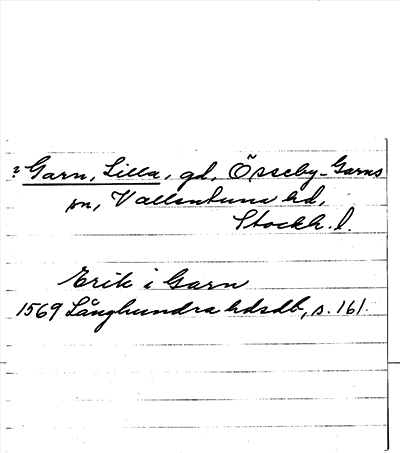 ? Garn, Lilla, gd, Össeby-Garns
sn, Vallentuna hd,
Stockh. l.
Erik i Garn
1569 Långhundra hdsdb, s. 161.